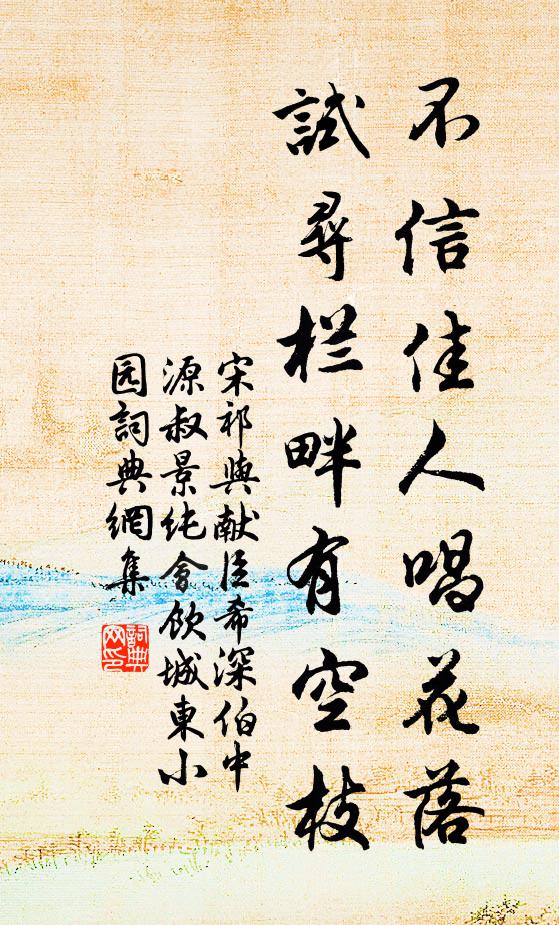 不信佳人唱花落
試尋栏畔有空枝
宋祁與献臣希深伯中
源叔景纯會飲城東小
园詞典網集
詞典
网印